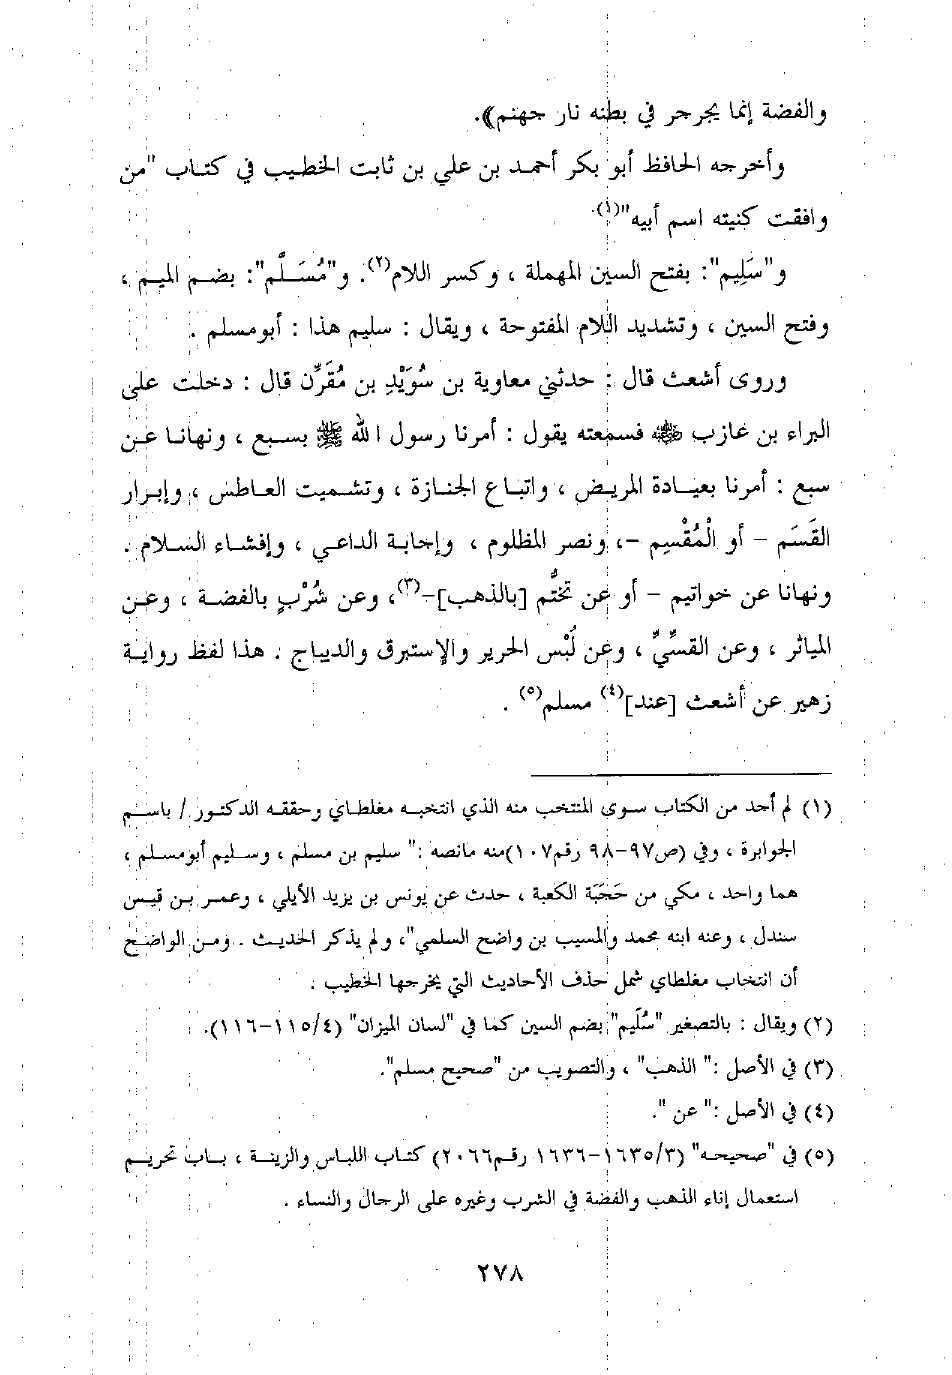 والفضة إنما يجرجر في بطنه نار جهنم﴾.
وأخرجه الحافظ أبو بكر أحمد بن علي بن ثابت الخطيب في كتاب "من
وافقت كنيته اسم أبيه"(١).
و"سَلِيم": بفتح السين المهملة ، وكسر اللام(٢). و"مُسَلَّم": بضم الميم ،
وفتح السين ، وتشديد اللام المفتوحة ، ويقال : سليم هذا : أبومسلم .
وروى أشعث قال : حدثني معاوية بن سُوَيْدِ بن مُقَرِّن قال : دخلت على
البراء بن عازب ﵁ فسمعته يقول : أمرنا رسول الله ﷺ بسبع ، ونهانا عن
سبع : أمرنا بعيادة المريض ، واتباع الجنازة ، وتشميت العاطس ، وإبرار
القَسَم – أو الْمُقْسِم –، ونصر المظلوم ، وإجابة الداعي ، وإفشاء السلام .
ونهانا عن خواتيم – أو عن تختُّم [بالذهب]–(٣)، وعن شُرْبٍ بالفضة ، وعن
المياثر ، وعن القسِّيِّ ، وعن لُبْس الحرير والإستبرق والديباج . هذا لفظ رواية
زهير عن أشعث [عند](٤) مسلم(٥) .
(١) لم أجد من الكتاب سوى المنتخب منه الذي انتخبه مغلطاي وحققه الدكتور / باسم
الجوابرة ، وفي (ص٩٧–٩٨ رقم١٠٧)منه مانصه :" سليم بن مسلم ، وسليم أبومسلم ،
هما واحد ، مكي من حَجَبَة الكعبة ، حدث عن يونس بن يزيد الأيلي ، وعمر بن قيس
سندل ، وعنه ابنه محمد والمسيب بن واضح السلمي"، ولم يذكر الحديث . ومن الواضح
أن انتخاب مغلطاي شمل حذف الأحاديث التي يخرجها الخطيب .
(٢) ويقال : بالتصغير "سُلَيم" بضم السين كما في "لسان الميزان" (٤/١١٥–١١٦).
(٣) في الأصل :" الذهب" ، والتصويب من "صحيح مسلم".
(٤) في الأصل :" عن ".
(٥) في "صحيحه" (٣/١٦٣٥–١٦٣٦ رقم٢٠٦٦) كتاب اللباس والزينة ، باب تحريم
استعمال إناء الذهب والفضة في الشرب وغيره على الرجال والنساء .
٢٧٨